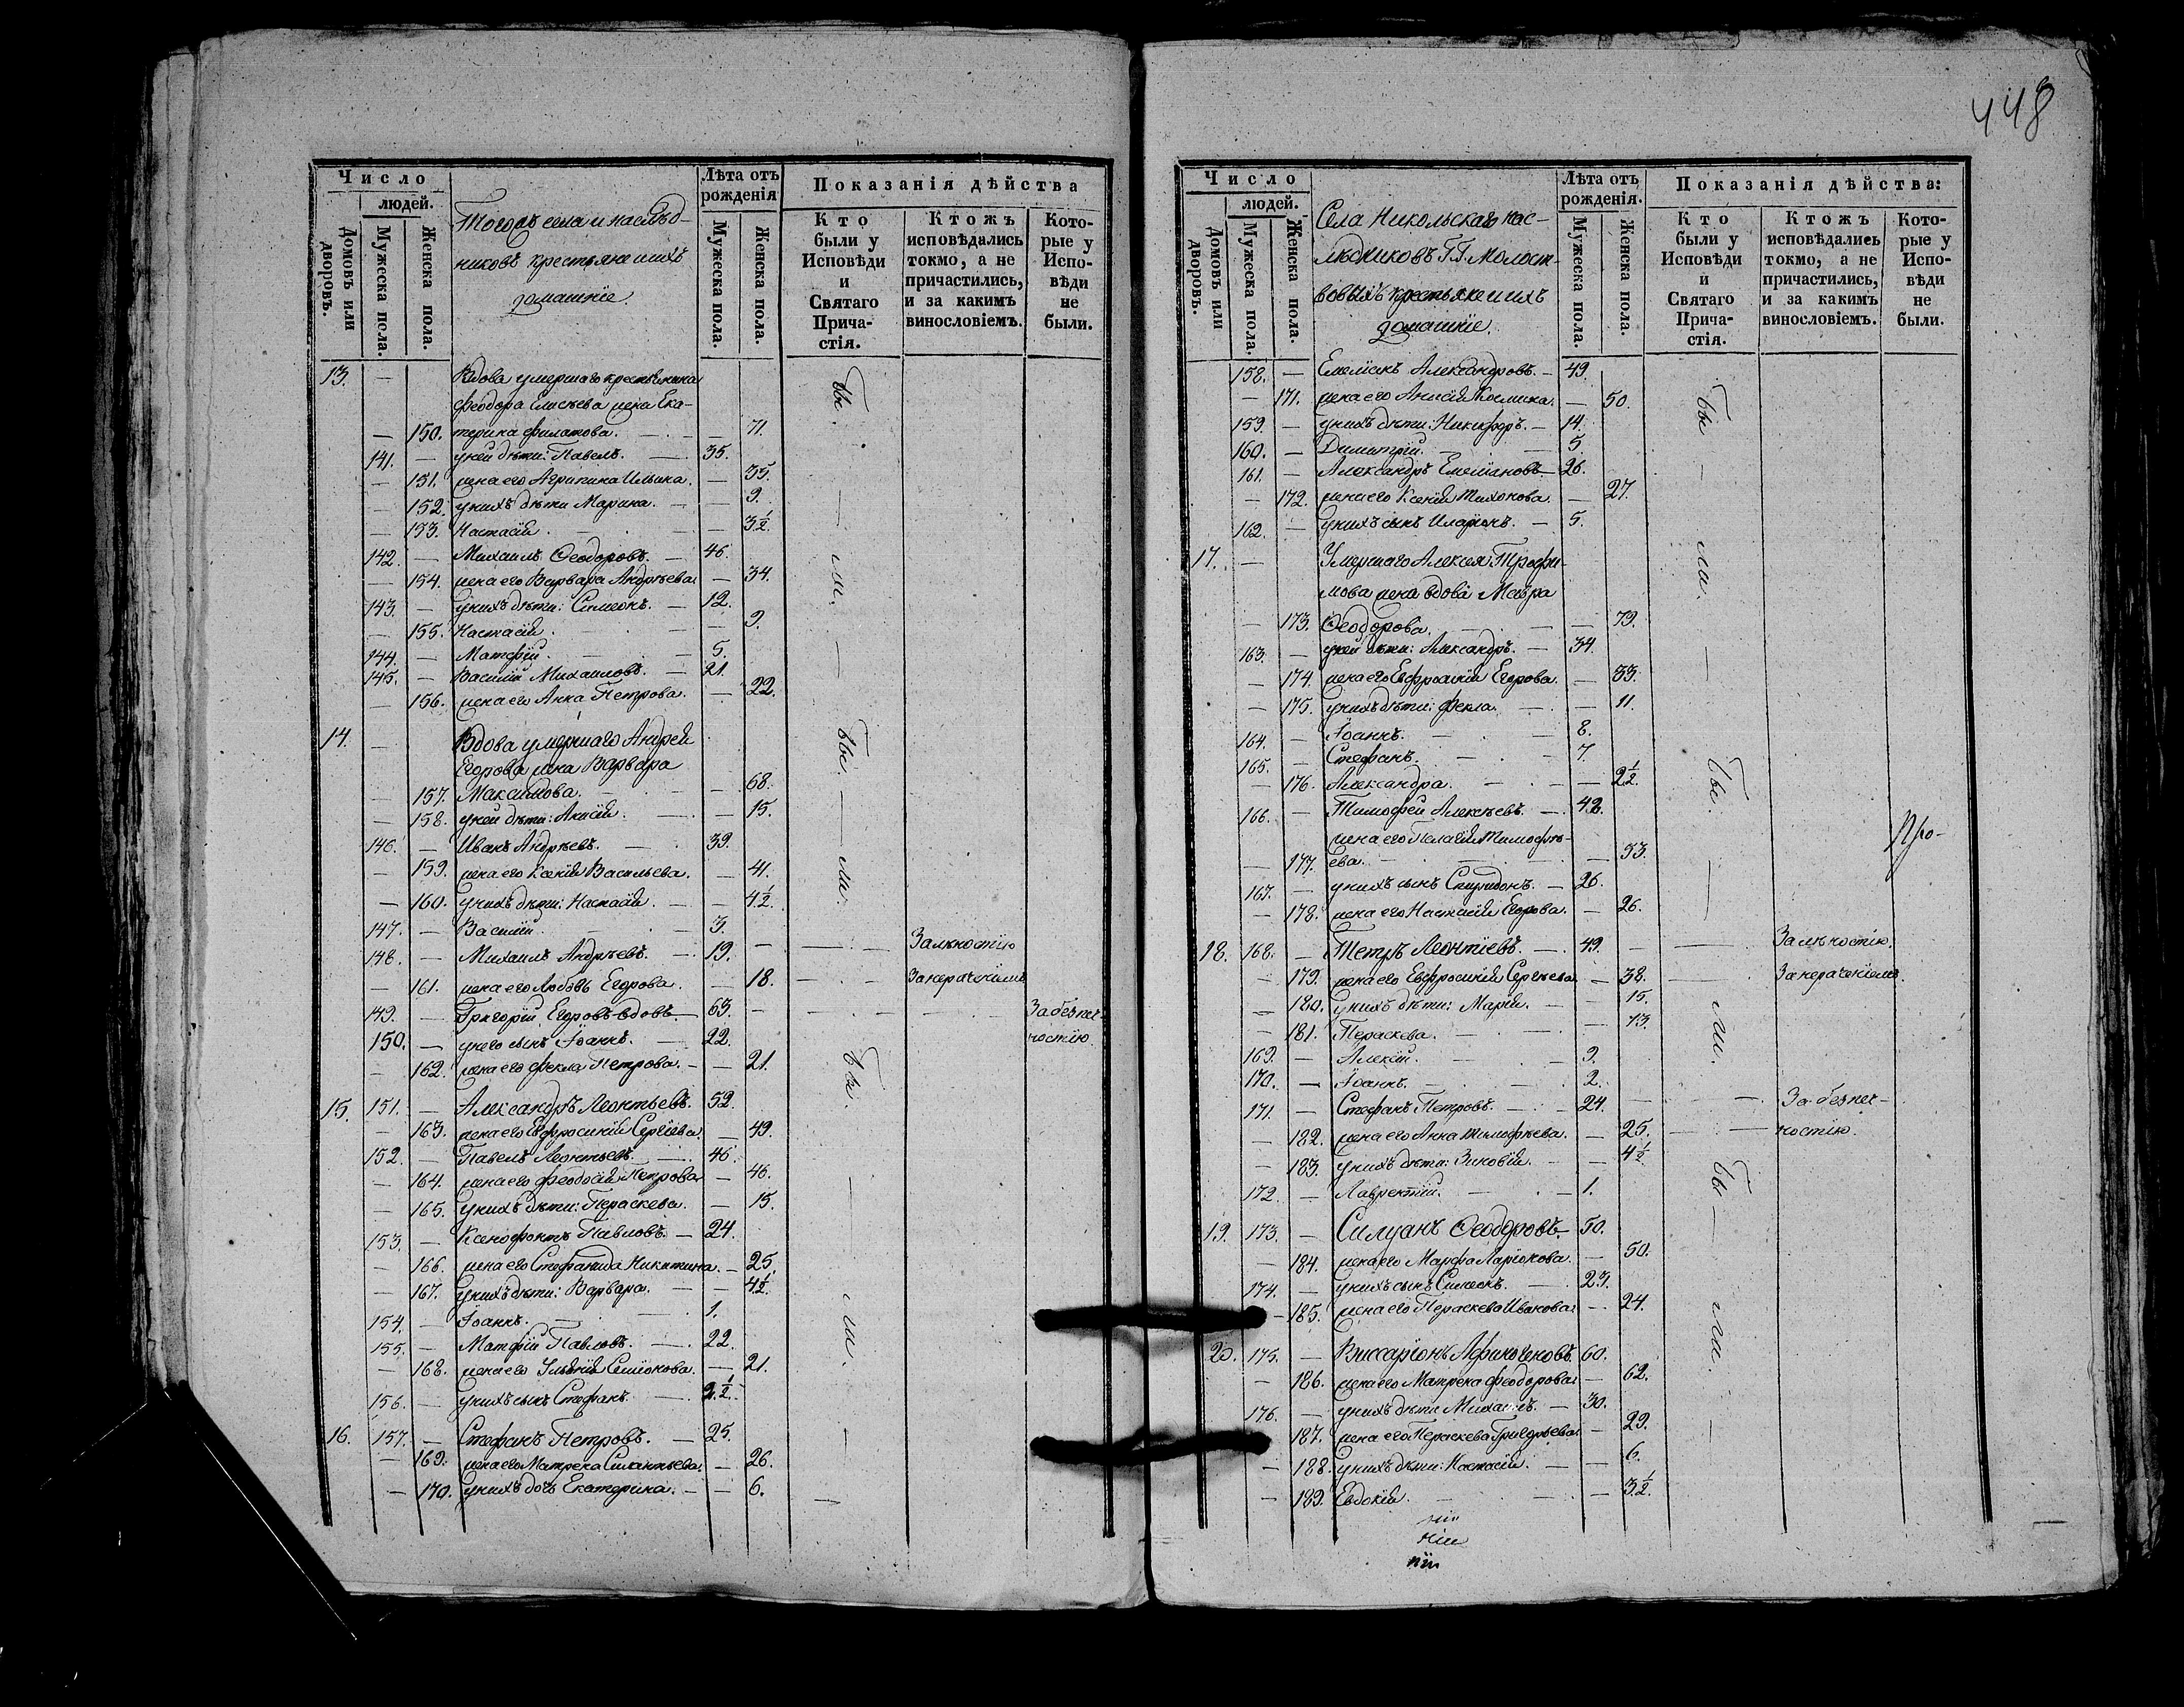 448
Число
людей.
Домовъ или дворовъ.
Мужеска пола.
Женска пола.
Тогожъ села и наслѣд-
никовъ крестьяне и ихъ
домашніе.
Лѣта отъ
рожденія
Мужеска пола.
Женска пола.
Показанія дѣйства
Кто
были у
Исповѣди
и
Святаго
Прича-
стія.
Ктожъ
исповѣдались
токмо, а не
причастились,
и за какимъ
винословіемъ.
Кото-
рые у
Испо-
вѣди
не
были.
13. — Вдова умершаго крестьянина
Феодора Елисѣева жена Ека-
— 150. терина Филатова. — — 71.
141. — у ней дѣти: Павелъ. — 35.
— 151. жена его Агрипина Ильина. — 35.
— 152. у нихъ дѣти Марина. — — 9.
— 153. Настасія. — 3½.
142. — Михаилъ Феодоровъ. — 46.
— 154. жена его Варвара Андрѣева. — 34.
143. — у нихъ дѣти: Симеонъ. — 12.
— 155. Настасія. — 9.
144. — Матфій. — 5.
145. — Василій Михаиловъ. — 21.
— 156. жена его Анна Петрова. — 22.
14. — Вдова умершаго Андрея
Егорова жена Варвара
— 157. Максимова. — 68.
— 158. у ней дѣти: Анисія. — 15.
146. — Иванъ Андрѣевъ. — 39.
— 159. жена его Ксенія Васильева. — 41.
— 160. у нихъ дѣти: Настасія. — — 4½.
147. — Василій. — 3.
148. — Михаилъ Андрѣевъ. — 19. — — За лѣностію
— 161. жена его Любовь Егорова. — 18. — За нераченіемъ
149. — Григорій Егоровъ вдовъ. 63. — — За безпеч-
150. — у него сынъ Іоаннъ. — 22. ностію.
— 162. жена его Фекла Петрова. — — 21.
15. 151. — Александръ Леонтьевъ. 52.
— 163. жена его Евфросинія Сергіева. — 49.
152. — Павелъ Леонтьевъ. — 46.
— 164. жена его Феодосія Петрова — 46.
— 165. у нихъ дѣти: Пераскева. — 15.
153. — Ксенофонтъ Павловъ. — 24.
— 166. жена его Стефанида Никитина. — 25.
— 167. у нихъ дѣти: Варвара. — — 4½.
154. — Іоаннъ. — 1.
155. — Матфій Павловъ. — 22.
— 168. жена его Ульянія Семіонова. — 21.
156. — у нихъ сынъ Стефанъ. — 2½.
16. 157. — Стефанъ Петровъ. — 25.
— 169. жена его Матрена Силантьева. — 26.
— 170. у нихъ дочь Екатерина. — — 6.
Бы — ли. — Бы. — ли. Бы. — ли. —
Число
людей.
Домовъ или дворовъ.
Мужеска пола.
Женска пола.
Села Никольскаго нас-
лѣдниковъ Г.Г. Молост-
вовыхъ крестьяне и ихъ
домашніе.
Лѣта отъ
рожденія.
Мужеска пола.
Женска пола.
Показанія дѣйства:
Кто
были у
Исповѣди
и
Святаго
Прича-
стія.
Ктожъ
исповѣдались
токмо, а не
причастились,
и за какимъ
винословіемъ.
Кото-
рые у
Испо-
вѣди
не
были.
158. — Емеліанъ Александровъ. — 49.
— 171. жена его Анисія Космина. — 50.
159. — у нихъ дѣти: Никифоръ. — 14.
160. — Димитрій. — 5.
161. — Александръ Емеліановъ — 26.
— 172. жена его Ксенія Тихонова. — 27.
162. — у нихъ сынъ Иларіонъ. — 5.
17. — Умершаго Алексея Трофи-
мова жена вдова Мавра
— 173. Феодорова. — — 79.
163. — у ней дѣти: Александръ. — 34.
— 174. жена его Евфросинія Егорова. — 33.
— 175. у нихъ дѣти: Фекла. — — 11.
164. — Іоаннъ. — 8.
165. — Стефанъ. — 7.
— 176. Александра. — — 2½.
166. — Тимофей Алексѣевъ. — 42.
жена его Пелагія Тимофѣ-
— 177. ева. — 53.
167. — у нихъ сынъ Спиридонъ. — 26.
— 178. жена его Настасія Егорова. — 26.
18. 168. — Петръ Леонтіевъ. — 49. — — За лѣностію.
— 179. жена его Евфросинія Сергѣева — 38. — За нераченіемъ.
— 180. у нихъ дѣти: Марія. — — 15.
— 181. Пераскева. — — 13.
169. — Алексій. — 9.
170. — Іоаннъ. — 2.
171. — Стефанъ Петровъ. — 24. — — За безпеч-
— 182. жена его Анна Тимофѣева. — 25. — ностію.
— 183. у нихъ дѣти: Зиновія. — — 4½.
172. — Лаврентій. — 1.
19. 173. — Силуанъ Феодоровъ. 50.
— 184. жена его Марфа Ларіонова. — 50.
174. — у нихъ сынъ Симеонъ. — 23.
— 185. жена его Пераскева Иванова. — 24.
20. 175. — Виссаріонъ Афиногеновъ. 60.
— 186. жена его Матрена Феодорова — 62.
176. — у нихъ дѣти Михаилъ. — 30.
— 187. жена его Пераскева Григорьева — 29.
— 188. у нихъ дѣти: Настасія. — — 6.
— 189. Евдокія. — — 3½.
Бы — ли. — Бы. — ли. Бы — ли. —
Про-